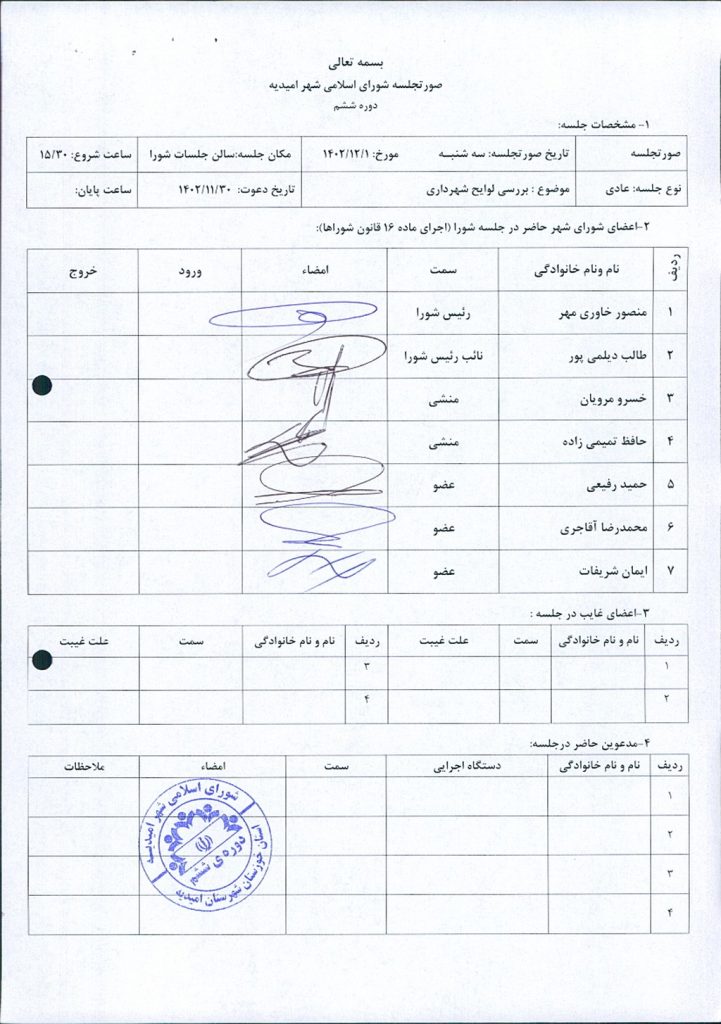 بسمه تعالی
صورتجلسه شورای اسلامی شهر امیدیه
دوره ششم
۱- مشخصات جلسه:
صورتجلسه تاریخ صورتجلسه: سه شنبه مورخ: ۱۴۰۲/۱۲/۱ مکان جلسه:سالن جلسات شورا ساعت شروع: ۱۵/۳۰
نوع جلسه: عادی موضوع : بررسی لوایح شهرداری تاریخ دعوت: ۱۴۰۲/۱۱/۳۰ ساعت پایان:
۲-اعضای شورای شهر حاضر در جلسه شورا (اجرای ماده ۱۶ قانون شوراها):
ردیف نام ونام خانوادگی سمت امضاء ورود خروج
۱ منصور خاوری مهر رئیس شورا
۲ طالب دیلمی پور نائب رئیس شورا
۳ خسرو مرویان منشی
۴ حافظ تمیمی زاده منشی
۵ حمید رفیعی عضو
۶ محمدرضا آقاجری عضو
۷ ایمان شریفات عضو
۳-اعضای غایب در جلسه :
ردیف نام و نام خانوادگی سمت علت غیبت ردیف نام و نام خانوادگی سمت علت غیبت
۱ ۳
۲ ۴
۴-مدعوین حاضر درجلسه:
ردیف نام و نام خانوادگی دستگاه اجرایی سمت امضاء ملاحظات
۱
۲
۳
۴
شورای اسلامی شهر امیدیه
دوره ی ششم
استان خوزستان شهرستان امیدیه